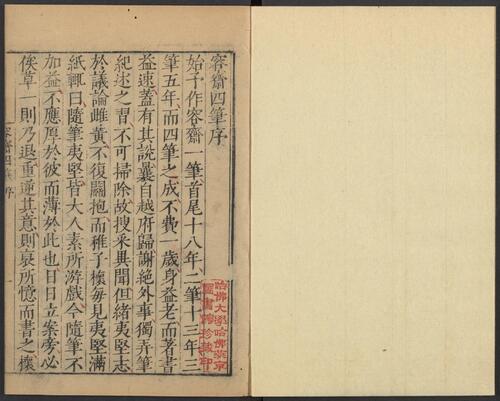 容齋四筆序
始予作容齋一筆首尾十八年二筆十三年三
筆五年而四筆之成不費一歲身益老而著書
益速蓋有其說曩自越府歸謝絶外事獨弄筆
紀述之習不可掃除故搜采異聞但緒夷堅志
於議論雌黃不復關抱而稚子櫰每見夷堅滿
紙輒曰隨筆夷堅皆大人素所游戲今隨筆不
加益不應厚於彼而薄於此也日日立案旁必
俟草一則乃退重逆其意則裒所憶而書之櫰
哈佛大學哈佛燕京
圖書館珍藏印
容齋四筆 序